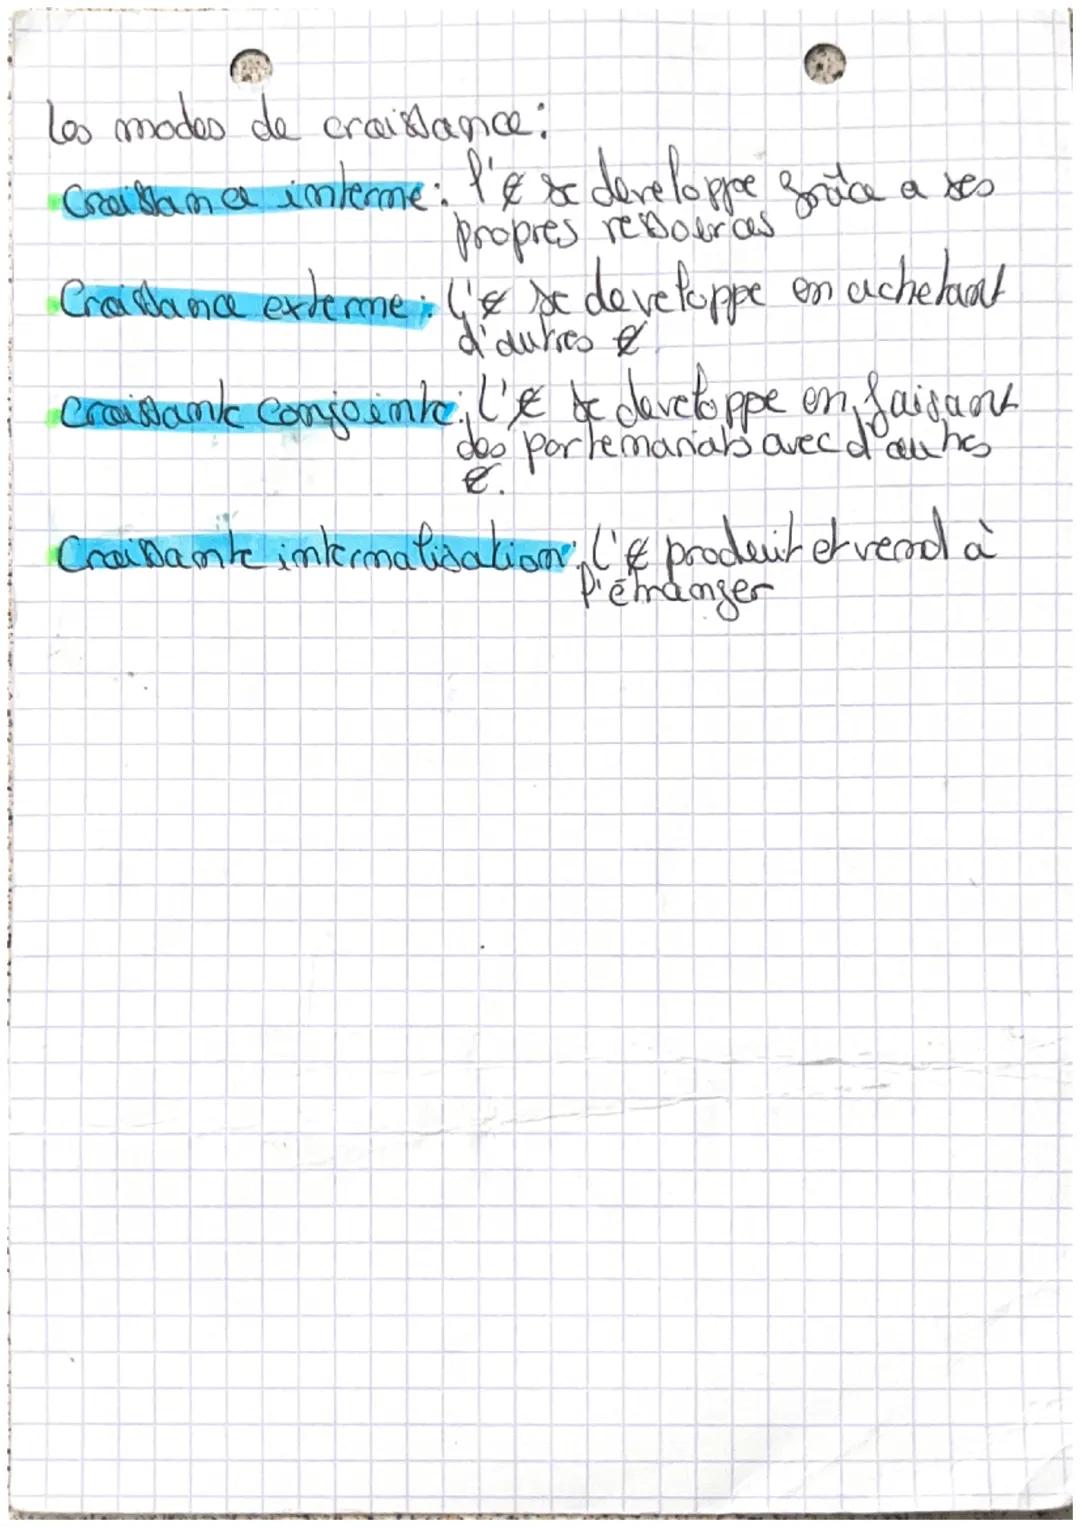 Les modes de croissance :
Croissance interne : l'€ se developpe grâce a ses
propres ressources
Croissance externe : L'€ se developpe en achetant
d'autres €
Croissante conjointe : L'€ se developpe en faisant
des partenariats avec d'autres
€.
Croissante internalisation : L'€ produit et vend à
l'étranger